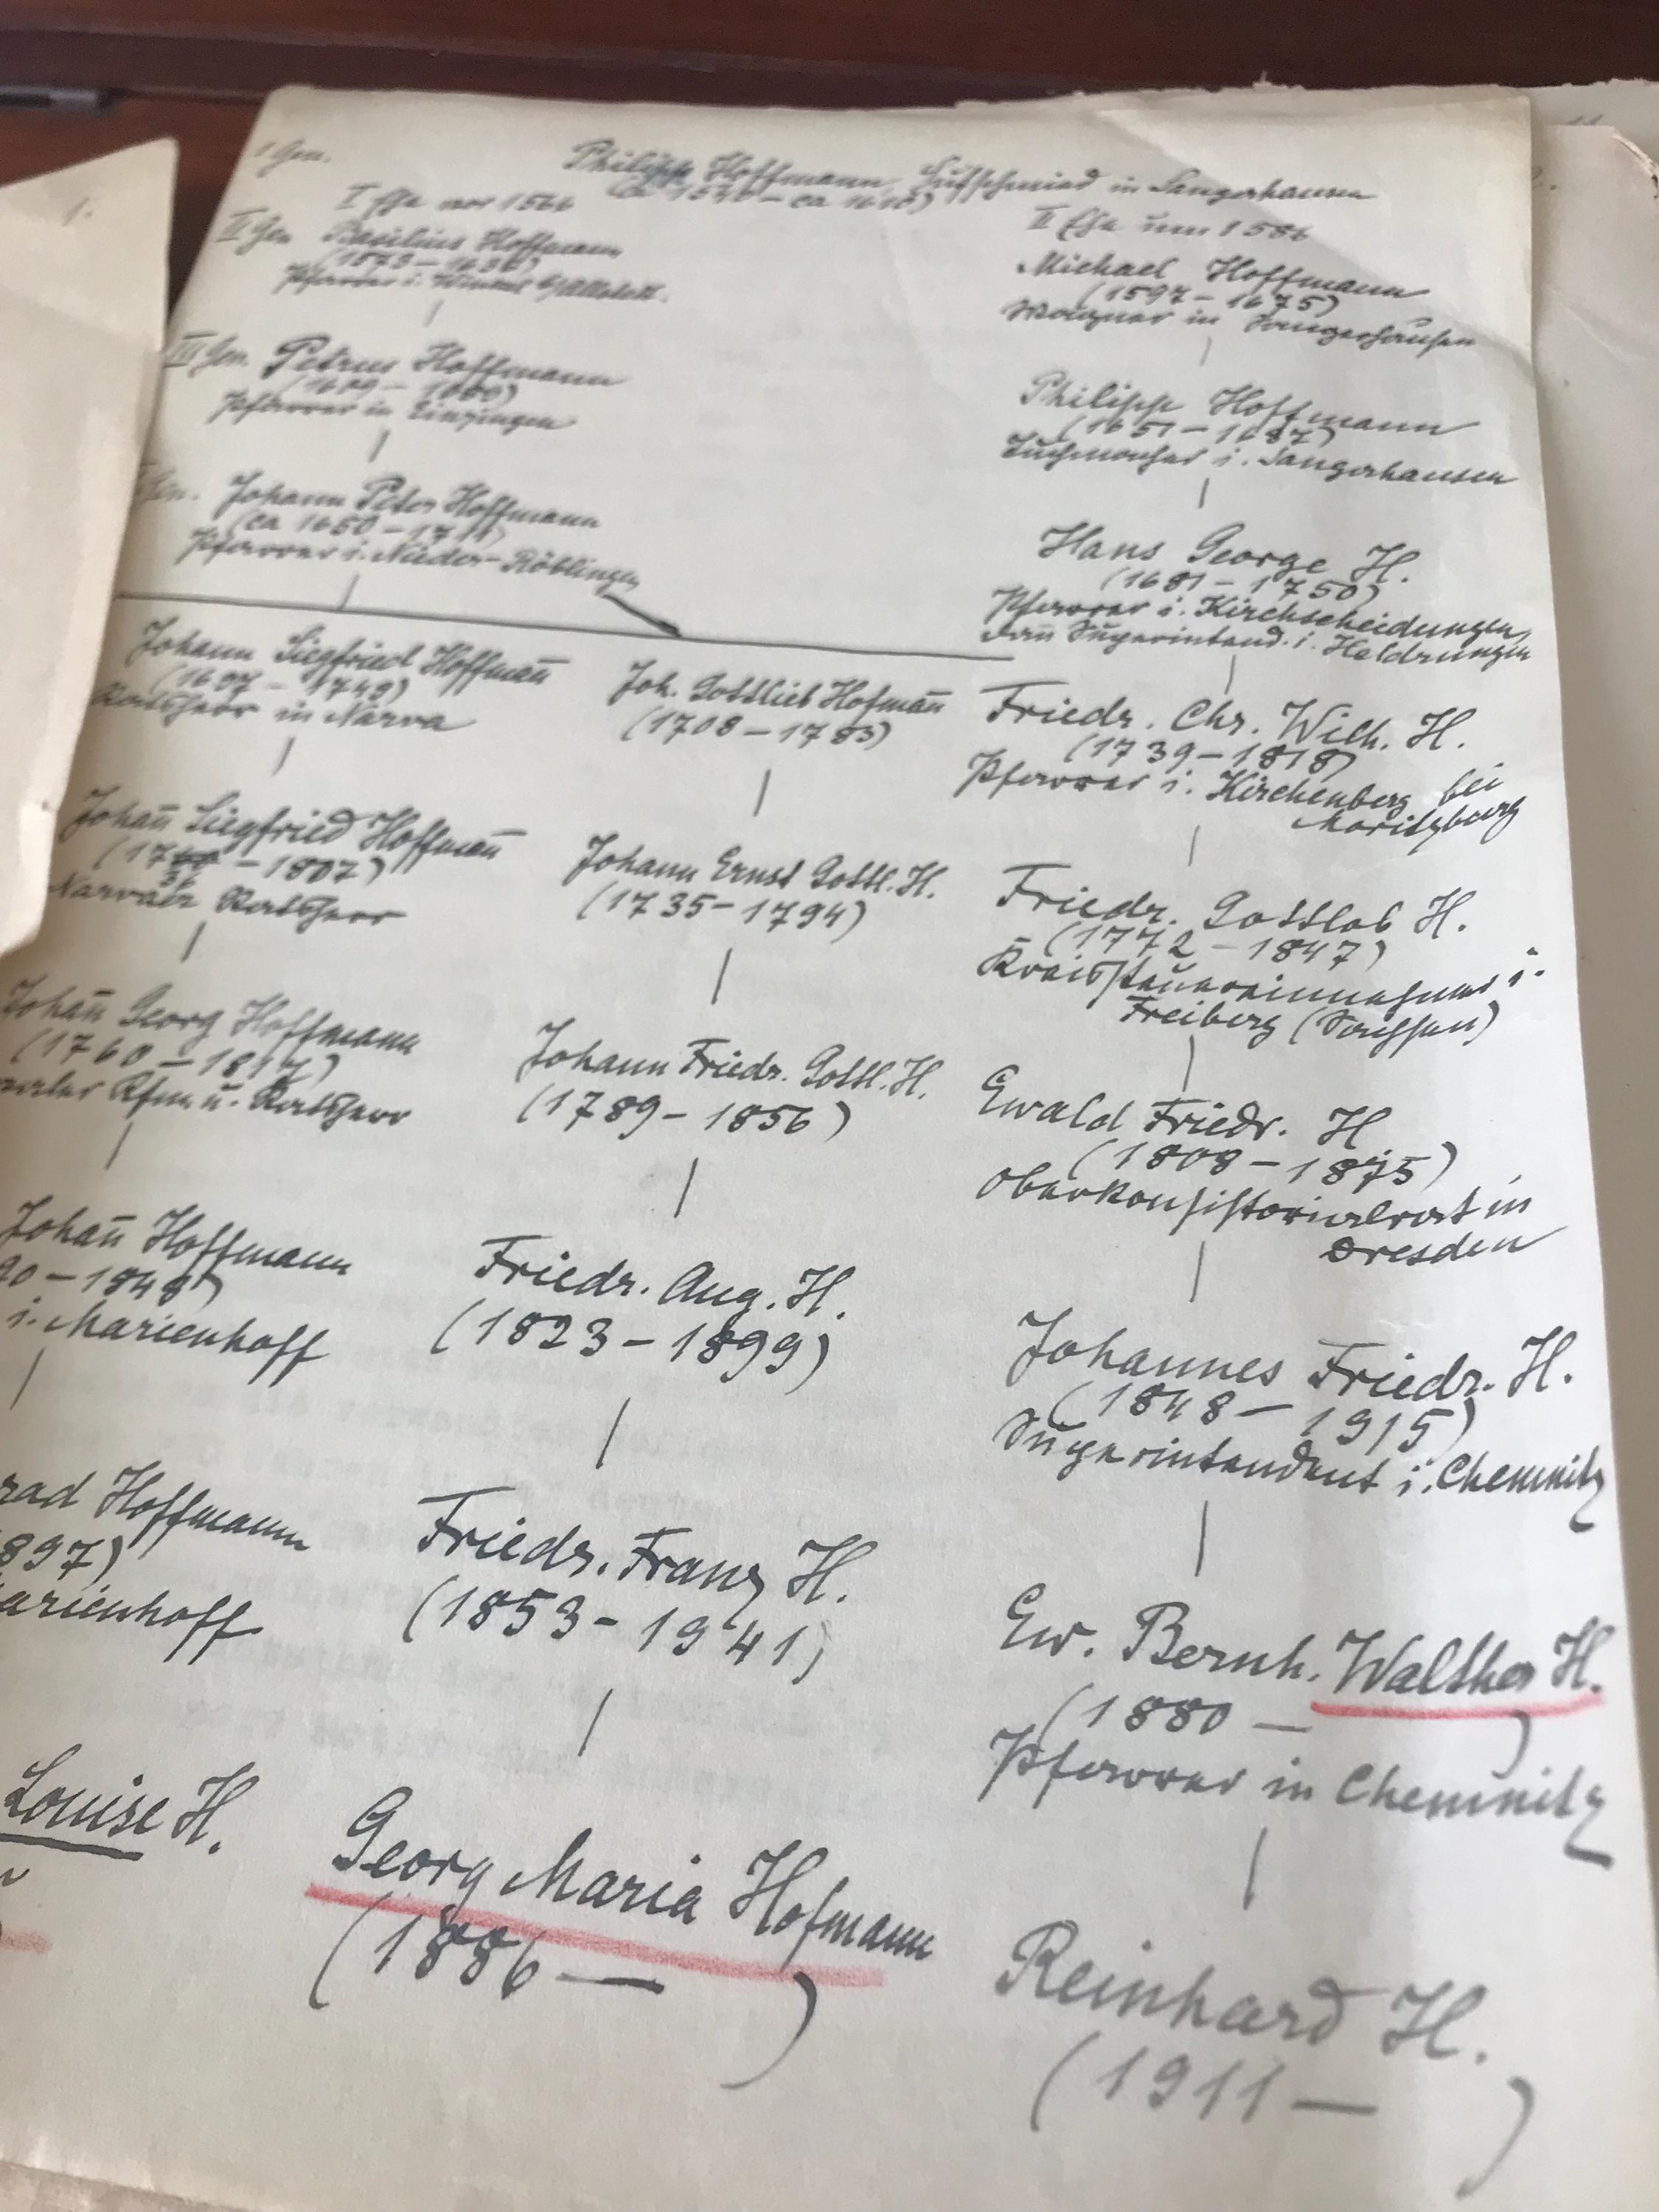 1 Gen.
Philipp Hoffmann, Hufschmied in Sangerhausen
(ca 1540 – ca 1610)
I Ehe vor 1566
II Ehe um 1586
II Gen Basilius Hoffmann
Pfarrer i. Winkel b/Allstedt.
Michael Hoffmann
(1597 – 1675)
Wagner in Sangerhausen
III Gen. Petrus Hoffmann
(1609 – 1680)
Pfarrer in Einzingen
Philipp Hoffmann
(1651 – 1687)
Tuchmacher i. Sangerhausen
Gen. Johann Peter Hoffmann
(ca 1650 – 1711)
Pfarrer i. Nieder-Röblingen
Hans George H.
(1681 – 1750)
Pfarrer i. Kirchscheidungen,
dañ Superintend. i. Heldrungen
Johann Siegfried Hoffmañ
(1697 – 1749)
Ratsherr in Narva
Joh. Gottlieb Hofmañ
(1708 – 1783)
Friedr. Chr. Wilh. H.
(1739 – 1818)
Pfarrer i. Kirchenberg bei
Moritzburg
Johañ Siegfried Hoffmañ
– 1807)
Narvaer Ratsherr
Johann Ernst Gottl. H.
(1735 – 1794)
Friedr. Gottlob H.
(1772 – 1847)
Kreissteuereinnehmer i.
Freiberg (Sachsen)
Johañ Georg Hoffmann
(1760 – 1817)
Kfm. u. Ratsherr
Johann Friedr. Gottl. H.
(1789 – 1856)
Ewald Friedr. H
(1808 – 1875)
Oberkonsistorialrat in
Dresden
Johañ Hoffmann
90 – 1848)
i. Marienhoff
Friedr. Aug. H.
(1823 – 1899)
Johannes Friedr. H.
(1848 – 1915)
Superintendent i. Chemnitz
rad Hoffmann
897)
arienhoff
Friedr. Franz H.
(1853 – 1941)
Ew. Bernh. Walther H.
(1880 – )
Pfarrer in Chemnitz
Louise H.
Georg Maria Hofmann
(1886 – )
Reinhard H.
(1911 – )